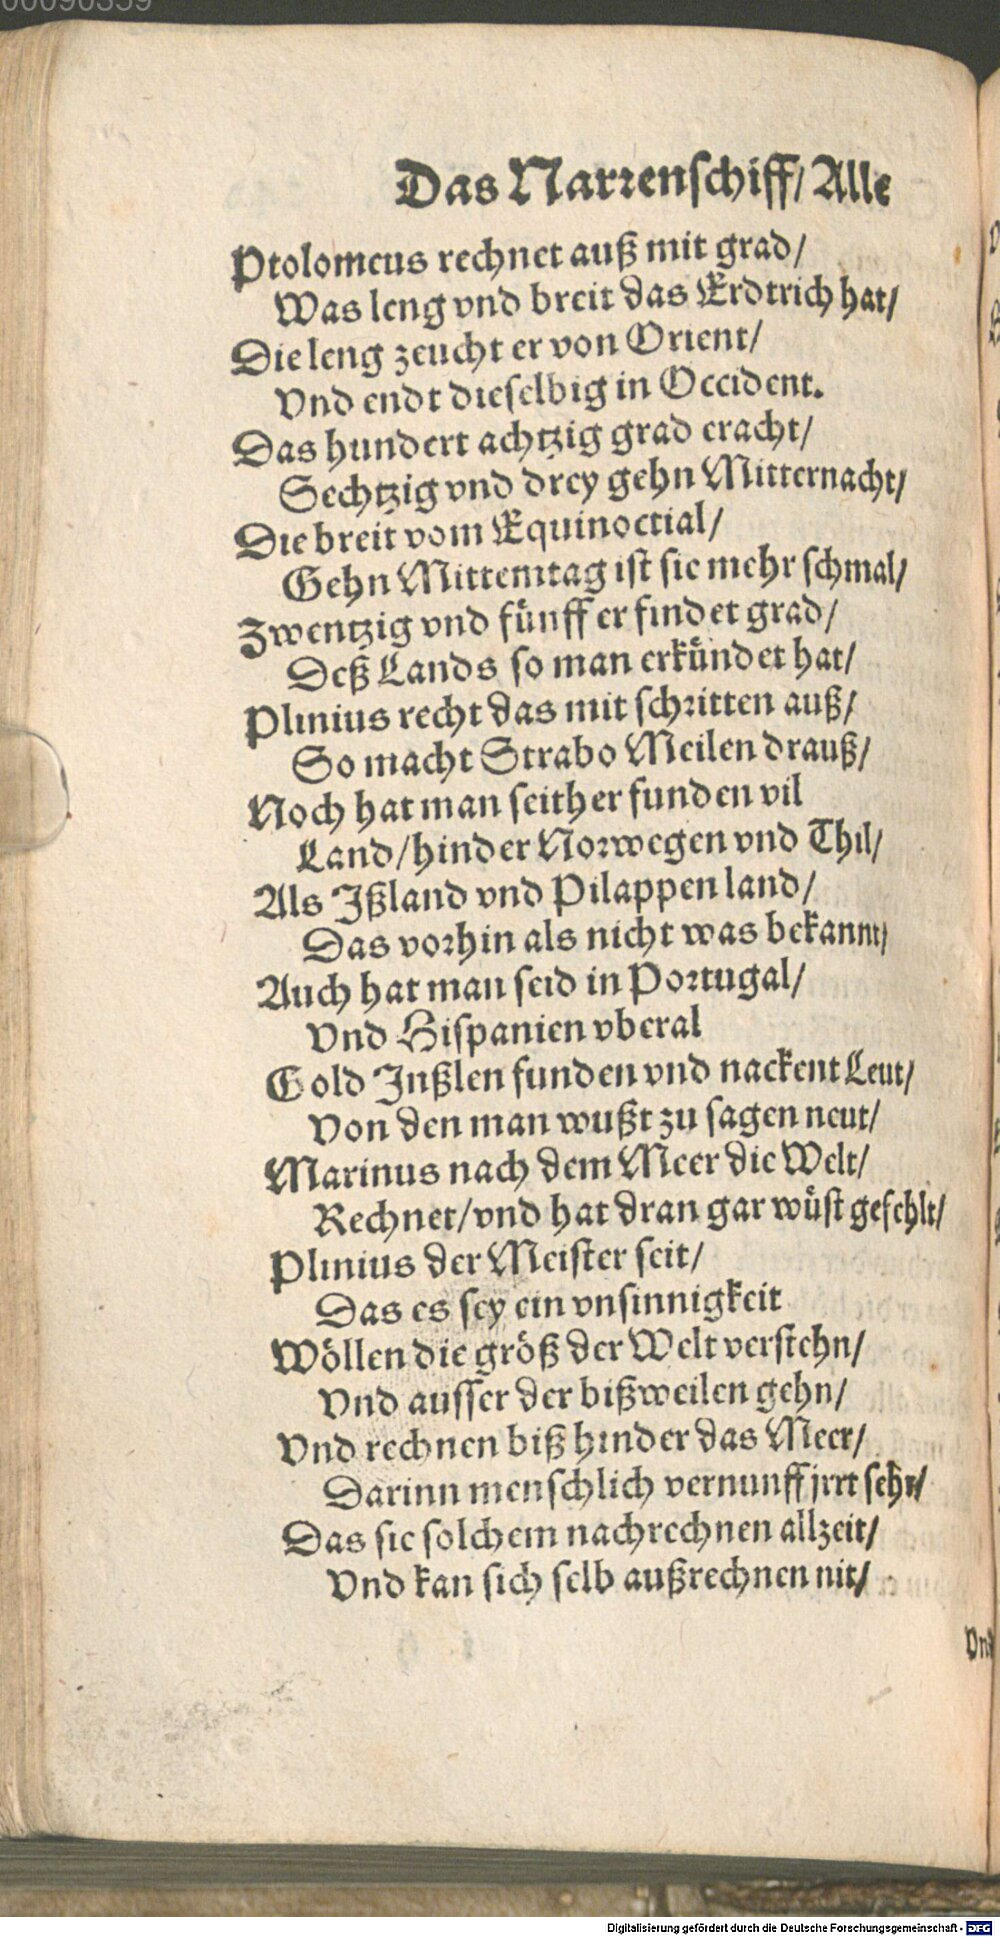 00090359
Das Narrenschiff/ Alle
Ptolomeus rechnet auß mit grad/
Was leng vnd breit das Erdtrich hat/
Die leng zeucht er von Orient/
Vnd endt dieselbig in Occident.
Das hundert achtzig grad eracht/
Sechtzig vnd drey gehn Mitternacht/
Die breit vom Equinoctial/
Gehn Mittemtag ist sie mehr schmal/
Zwentzig vnd fünff er findet grad/
Deß Lands so man erkündet hat/
Plinius recht das mit schritten auß/
So macht Strabo Meilen drauß/
Noch hat man seither funden vil
Land/ hinder Norwegen vnd Thil/
Als Jßland vnd Pilappenland/
Das vorhin als nicht was bekannt/
Auch hat man seid in Portugal/
Vnd Hispanien vberal
Gold Jnßlen funden vnd nackent Leut/
Von den man wußt zu sagen neut/
Marinus nach dem Meer die Welt/
Rechnet/ vnd hat dran gar wüst gefehlt/
Plinius der Meister seit/
Das es sey ein vnsinnigkeit
Wöllen die größ der Welt verstehn/
Vnd ausser der bißweilen gehn/
Vnd rechnen biß hinder das Meer/
Darinn menschlich vernunff jrrt sehr/
Das sie solchem nachrechnen allzeit/
Vnd kan sich selb außrechnen nit/
Vnd
Digitalisierung gefördert durch die Deutsche Forschungsgemeinschaft - DFG